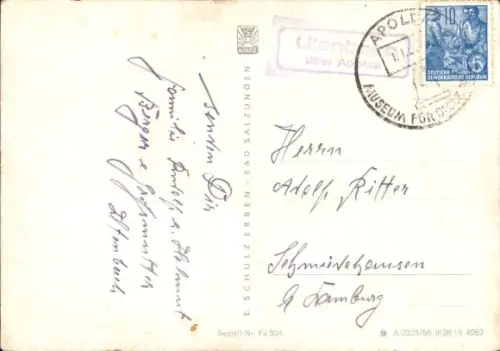 senden Dir
Familie Rudolf u. Helmut
Berger u. Großmutter
Utenbach
E. SCHULZ ERBEN - BAD SALZUNGEN
Utenbach
über Apolda
APOLDA
MUSEUM FÜR
10
DEUTSCHE
DEMOKRATISCHE REPUBLIK
5
Herrn
Adolf Ritter
Schmiedehausen
Camburg
Bestell-Nr. Fa 504